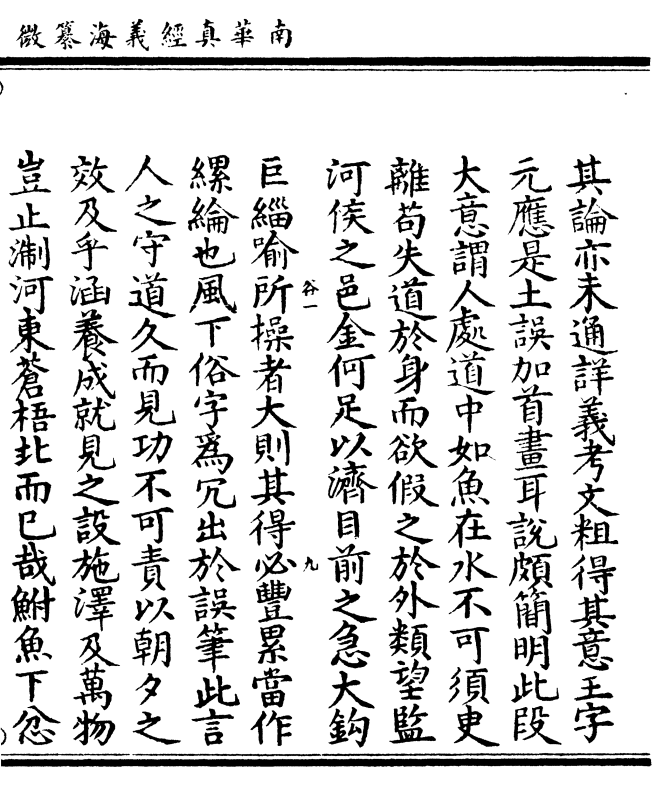 南華真經義海纂微
其論亦未通詳義考文粗得其意王字
元應是土誤加首畫耳說頗簡明此段
大意謂人處道中如魚在水不可須臾
離苟失道於身而欲假之於外類望監
河侯之邑金何足以濟目前之急大鈎
巨緇喻所操者大則其得必豐累當作
谷一
九
縲綸也風下俗字爲冗出於誤筆此言
人之守道久而見功不可責以朝夕之
效及乎涵養成就見之設施澤及萬物
豈止淛河東蒼梧北而已哉鮒魚下忿